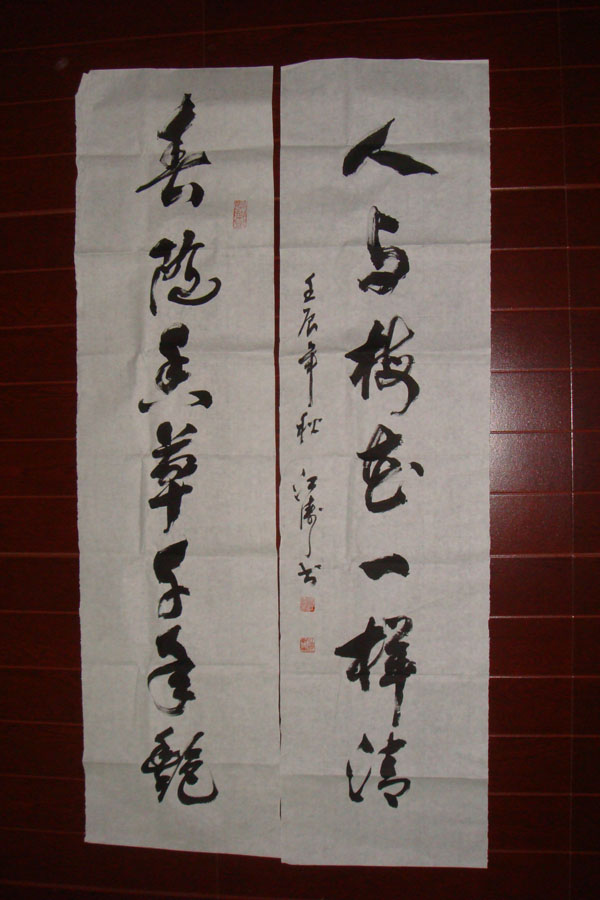 人与梅花一样清
壬辰年秋 江涛书
春随香草千年艳